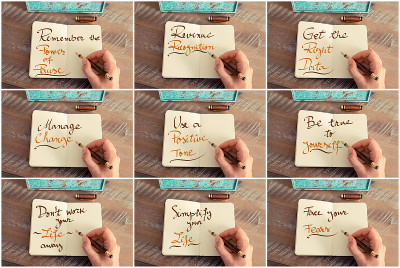 Remember the
Power
of
Pause
Revenue
Recognition
Get the
Right
Data
Manage
Change
Use a
Positive
Tone
Be true
to
yourself
Don't work
your
Life
away
Simplify
your
Life
Face your
Fears